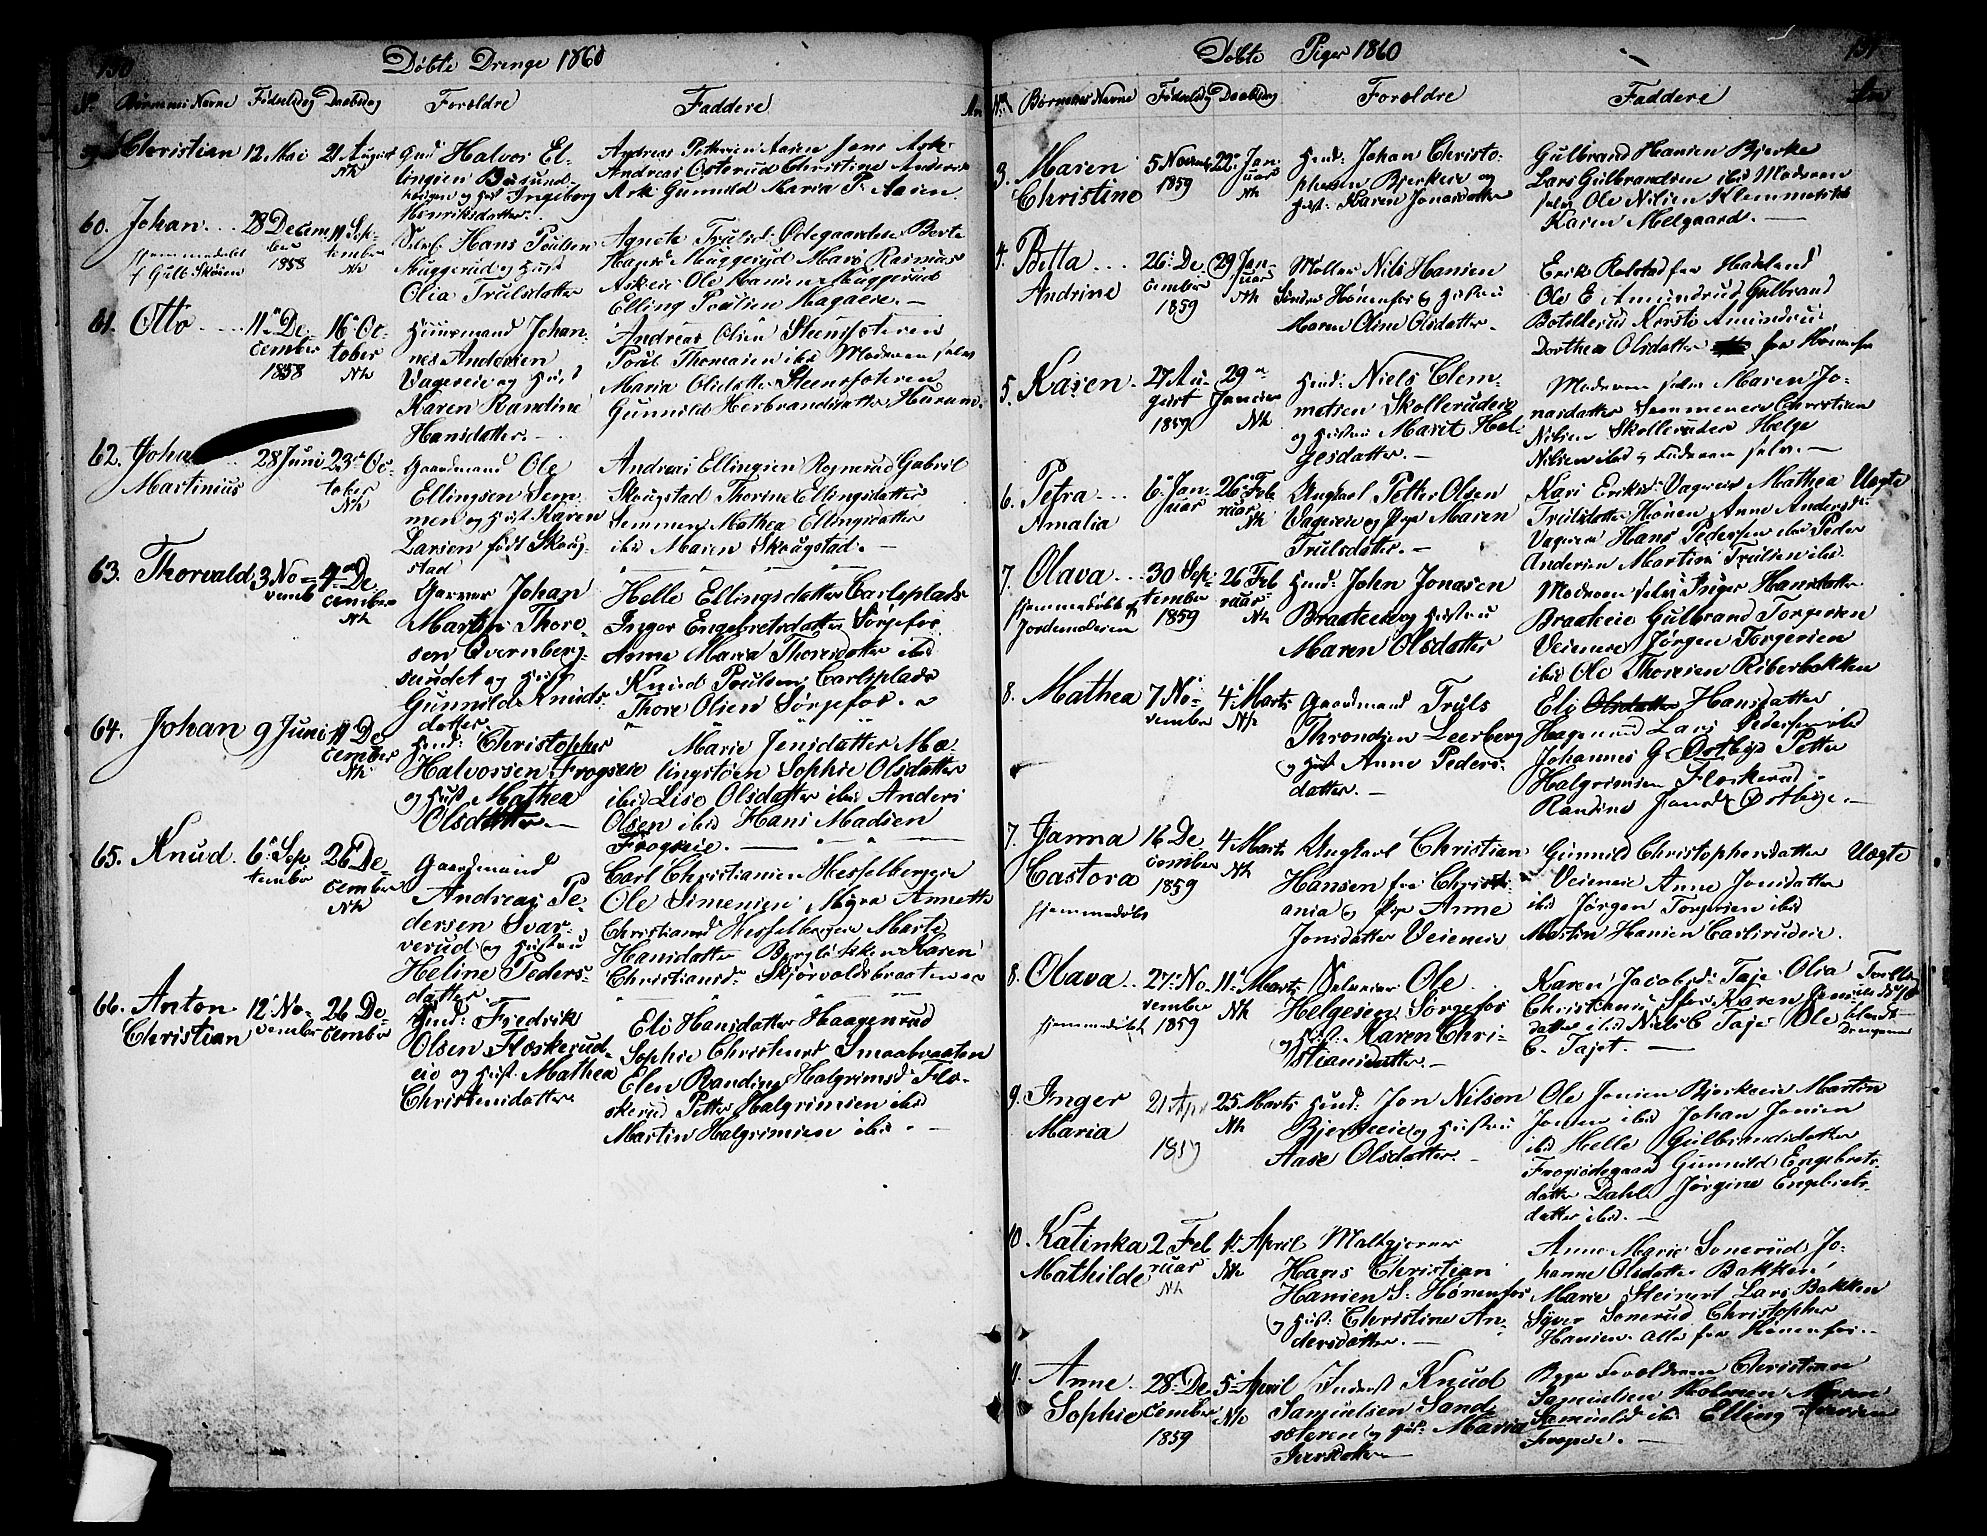 130
Døbte Drenge 1860
No Børnenes Navne Fødselsdag Daabsdag Forældre Faddere An
59 Christian 12 Mai 21 August Nh
Gmd Halvor El-
lingsen Busund-
hougen og Hust Ingeborg
Henriksdatter.
Andreas Pettersen Aasen Jens Ask
Andreas Østerud Christine Anders
Ask Gunnild Maria P. Aasen
60. Johan 28 Decem-
ber 1858 11 Sep-
tember Nh
hjemmedøbt
af Gulb Skøien
Selvei Hans Poulsen
Muggerud og Hust
Olia Trulsdatter
Agnete Trulsd. Østegaarden Berte
Hansd Muggerud Mari Rasmus
Askeie Ole Hansen Muggerud
Elling Poulsen Hagaeie. –
61. Otto 11 De-
cember
1858
16 Oc-
tober
Nh
Huusmand Johan-
nes Andersen
Vageie og Hust
Karen Randine
Hansdatter. –
Andreas Olsen Steensæteren
Poul Thomasen ibid Moderen selv
Maria Olsdatter Steensæteren
Gunnild Herbrandsdatter Hurum.
62. Johan
Martinius
28 Juni 23 Oc-
tober
Nh
Gaardmand Ole
Ellingsen Sem-
men og Hust Karen
Larsen født Skoug-
stad
Andreas Ellingsen Rognerud Gabriel
Skougstad Thorine Ellingsdatter
Semmen Mathea Ellingsdatter
ibid Maren Skougstad. –
63. Thorvald 3 No-
vemb 4 De-
cember
Nh
Garver Johan
Martin Thore-
sen Qvernberg-
sundet og Hust
Gunnild Knuds-
datter.
Helle Ellingsdatter Carlsplads
Inger Engebretsdatter Sørgefos
Anne Maria Thoresdatter ibid
Knud Poulsen Carlsplads
Thore Olsen Sørgefos.
64. Johan 9 Juni 11 De-
cember
Nh
Hmd: Christopher
Halvorsen Frogseie
og Hust Mathea
Olsdatter. –
Marie Jensdatter Mæ-
lingstøen Sophie Olsdatter
ibid Lise Olsdatter ibid Anders
Olsen ibid Hans Madsen
Frogseie. –
65. Knud 6 Sep-
tember 26 De-
cember
Nh
Gaardmand
Andreas Pe-
dersen Svar-
verud og Hustru
Heline Peders-
datter
Carl Christiansen Hesselbergeie
Ole Simensen Myra Annette
Christiansd Hesselbergeie Marte
Hansdatter Bergløkken Karen
Christiansd. Skjørvoldsbraaten
66. Anton
Christian
12 No-
vember
26 De-
cember
Hmd: Fredrik
Olsen Floskerud-
eie og Hust. Mathea
Christensdatter
Eli Hansdatter Haagenrud
Sophie Christensd Smaabraaten
Elen Randine Halgrimsd: Flo-
skerud Petter Halgrimsen ibid
Martin Halgrimsen ibid. –
131
Døbte Piger 1860
No Børnenes Navne Fødselsdag Daabsdag Forældre Faddere An
3. Maren
Christine
5 Novemb
1859
22 Jan-
uar
Nh
Hmd: Johan Christo-
phersen Bjerkeie og
Hust: Karen Jonasdatter
Gulbrand Hansen Bjerke
Lars Gulbrandsen ibid Moderen
selv Ole Nilsen Klemmetsrud
Karen Melgaard. –
4. Betta
Andrine
26 De-
cember
1859
29 Jan-
uar
Nh
Møller Nils Hansen
Søndre Hønenfos og Hustru
Maren Oline Olsdatter.
Erik Rolstad fra Hadeland
Ole E. Amundrud Gulbrand
Botellerud Kirsti Amundrud
Dorthea Olsdatter fra Hønenfos
5. Karen 27 Au-
gust
1859
29
Januar
Nh
Hmd: Niels Clem-
metsen Skollerudeie
og Hustru Marit Hel-
gesdatter. –
Moderen selv Maren Jo-
nasdatter Semmeneie Christian
Nilsen Skollerudeie Helge
Nilsen ibid og Faderen selv. –
6. Petra
Amalia
6 Jan-
uar
26 Feb-
ruar
Nh
Ungkarl Petter Olsen
Vageie og Pige Maren
Trulsdatter. –
Kari Eriksd: Vageie Mathea
Trulsdatter Hønen Anne Andersd:
Vageie Hans Pedersen ibid Peder
Andersen Martin Trulsen ibid.
Uægte
7. Olava 30 Sep-
tember
1859
26 Feb-
ruar
Nh
hjemmedøbt af
Jordemoderen
Hmd: John Jonasen
Braateeie og Hustru
Maren Olsdatter
Moderen selv Inger Hansdatter
Braateeie Gulbrand Torgersen
Veieneie Jørgen Torgersen
ibid Ole Thoresen Riberbakken
8. Mathea 7 No-
vember
4 Marts
Nh
Gaardmand Truls
Throndsen Leerberg
og Hust Anne Peders-
datter. –
Eli Olsdatter Hansdatter
Hagenrud Lars Pedersen ibid
Johannes G. Østbye Petter
Halgrimsen Floskerud
Randine Jansd Østbye. –
7. Janna
Castora
16 De-
cember
1859
4 Marts
Nh
hjemmedøbt
Ungkarl Christian
Hansen fra Christi-
ania og Pige Anne
Jonsdatter Veieneie
Gunnild Christophersdatter
Veieneie Anne Jonsdatter
ibid Jørgen Torgersen ibid
Martin Hansen Carlsrudeie.
Uægte
8. Olava 27 No-
vember
1859
11 Marts
Nh
hjemmedøbt
Selveier Ole
Helgesen Sørgefos
og Hust: Karen Chri-
stiansdatter. –
Karen Jacobsd: Taje Olia
Christensd Karen Jens-
datter ibid Niels C. Taje Ole
C. Tajet. –
blandt
Drengene
9. Inger
Maria
21 Apr
1859
25 Marts
Nh
Hmd: Jon Nilsen
Bjerkeeie og Hustru
Aase Olsdatter. –
Ole Jonsen Bjerkeeie Martin
Jonsen ibid Johan Jonsen
ibid Helle Gulbrandsdatter
Frogsødegaard Gunnild Engebrets-
datter Dahl Jørgine Engebrets-
datter ibid. –
10. Katinka
Mathilde
2 Feb-
ruar
Nh
1 April
Nh
Maltgjører
Hans Christian
Hansen S. Hønenfos
og Hust: Christine An-
dersdatter. –
Anne Marie Sonerud Jo-
hanne Olsdatter Bakken
Marie Steinert Lars Bakken
Syver Sonerud Christopher
Hansen alle fra Hønenfos. –
11. Anne
Sophie
28 De-
cember
1859
5 April
Nh
Inderst Knud
Samuelsen Sand-
sæteren og Hust: Maria
Iversdatter
Begge Forældrene Christian
Samuelsen Holmen Maren
Samuelsd ibid Elling Iversen
Frogseie. –